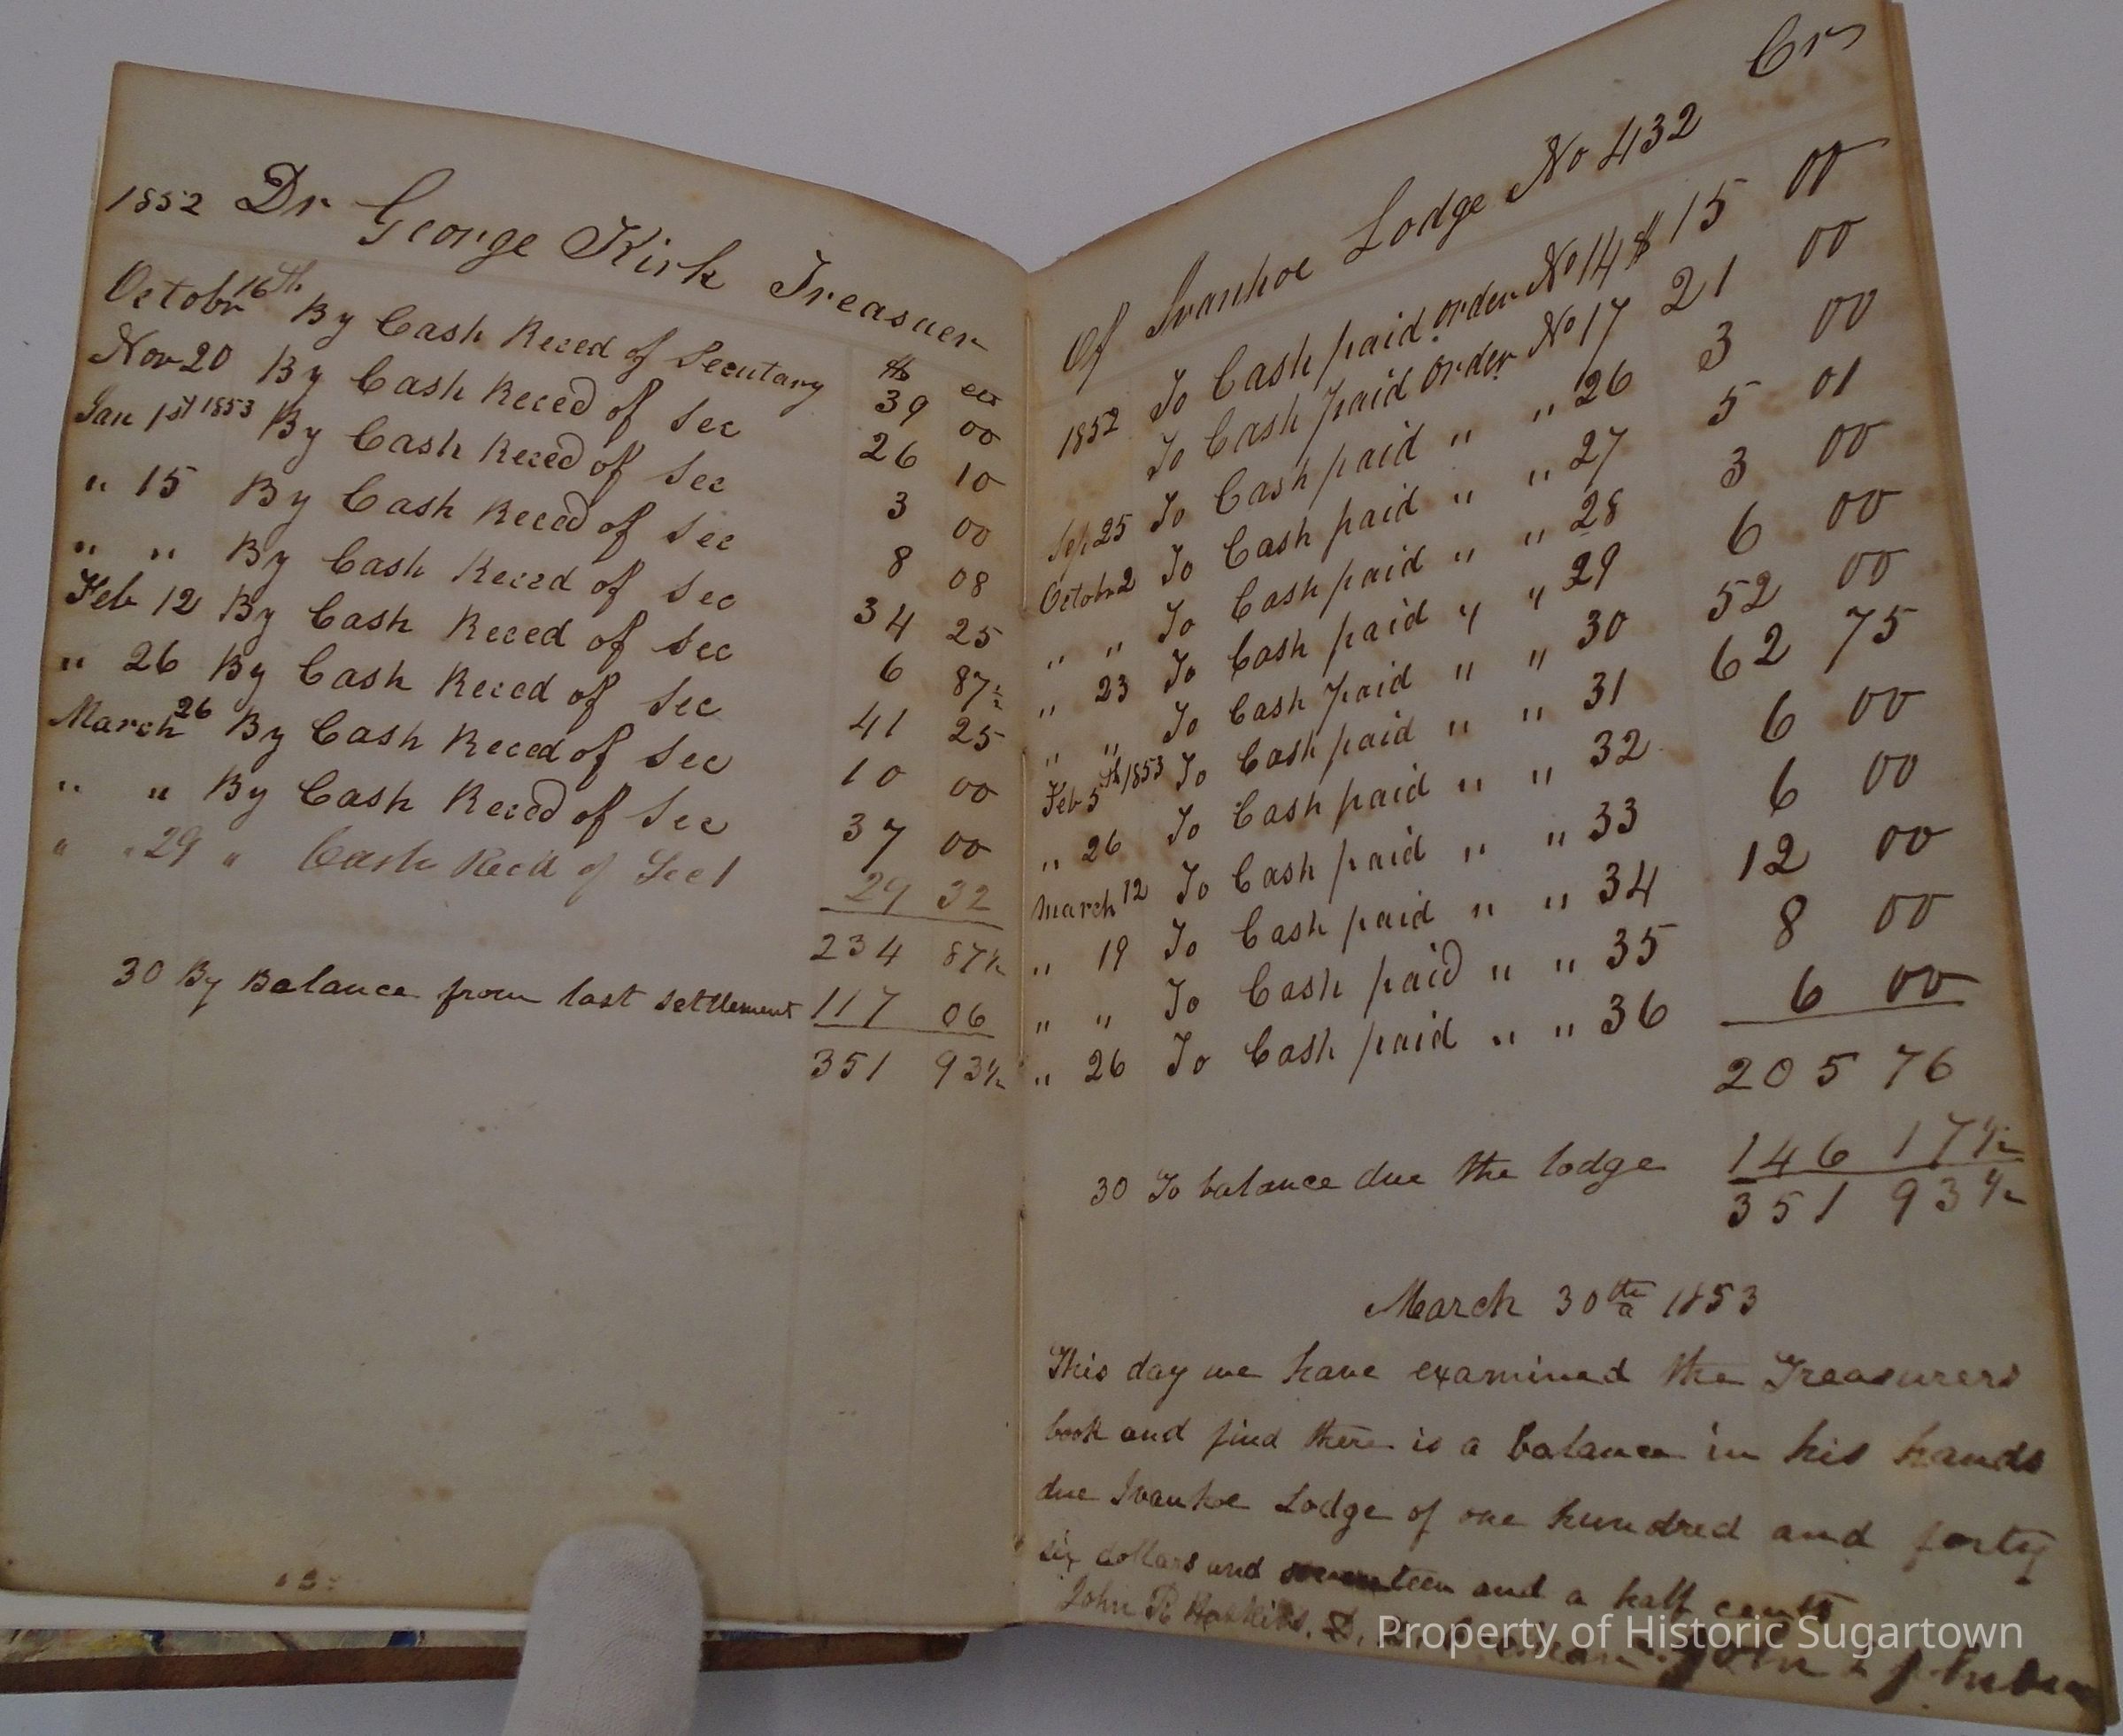 1852 Dr George Kirk Treasuer
$ cts
Octobr 16th By Cash Reced of Secutary 39 00
Nov 20 By Cash Reced of Sec 26 10
Jan 1st 1853 By Cash Reced of Sec 3 00
" 15 By Cash Reced of Sec 8 08
" " By Cash Reced of Sec 34 25
Feb 12 By Cash Reced of Sec 6 87½
" 26 By Cash Reced of Sec 41 25
March 26 By Cash Reced of Sec 10 00
" " By Cash Reced of Sec 37 00
" " 29 " Cash Recd of Sect 29 32
234 87½
30 By Balance from last settlement 117 06
351 93½
Crs
Of Ivanhoe Lodge No 432
1852 To Cash paid order No 14 $ 15 00
To Cash paid order No 17 21 00
Sep 25 To Cash paid " " 26 3 00
Octobr 2 To Cash paid " " 27 5 01
" " To Cash paid " " 28 3 00
" 23 To Cash paid " " 29 6 00
" " To Cash paid " " 30 52 00
Feb 5th 1853 To Cash paid " " 31 62 75
" 26 To Cash paid " " 32 6 00
March 12 To Cash paid " " 33 6 00
" 19 To Cash paid " " 34 12 00
" " To Cash paid " " 35 8 00
" 26 To Cash paid " " 36 6 00
205 76
30 To balance due the lodge 146 17½
351 93½
March 30th 1853
This day we have examined the Treasurers
book and find there is a balance in his hands
due Ivanhoe Lodge of one hundred and forty
six dollars and seventeen and a half cents
John R Hoskins.
Property of Historic Sugartown